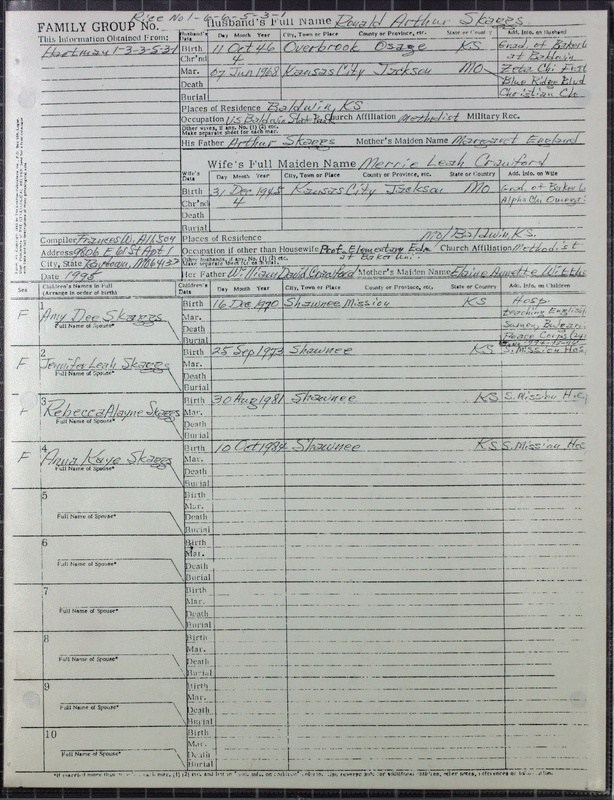 Rice No 1-6-6-5-3-1
FAMILY GROUP No. Husband's Full Name Ronald Arthur Skaggs
This Information Obtained From: Husband's Data Day Month Year City, Town or Place County or Province, etc. State or Country Add. Info. on Husband
Hartman 1-3-3-5-3-1 Birth 11 Oct 46 Overbrook Osage KS Grad. of Baker U
Chr'nd 4 at Baldwin
Mar. 07 Jun 1968 Kansas City Jackson MO Zeta Chi
Death Blue Ridge Blvd
Burial Christian Ch.
Places of Residence Baldwin, KS
Occupation Church Affiliation Methodist Military Rec.
Other wives, if any. No. (1) (2) etc.
Make separate sheet for each mar.
His Father Arthur Skaggs Mother's Maiden Name Margaret England
Wife's Full Maiden Name Merrie Leah Crawford
Wife's Data Day Month Year City, Town or Place County or Province, etc. State or Country Add. Info. on Wife
Birth 31 Dec 1945 Kansas City Jackson MO Grad. of Baker U
Chr'nd 4 Alpha Chi Omega
Death
Burial
Compiler Frances W. Places of Residence Baldwin, KS.
Address 9806 E 61 St Apt 1 Occupation if other than Housewife Prof. Elementary Edn at Baker Uni. Church Affiliation Methodist
City, State Raytown, MO 64133 Other husbands, if any. No. (1) (2) etc.
Make separate sheet for each mar.
Date 1995 Her Father William David Crawford Mother's Maiden Name Elaine Annette
Sex Children's Names in Full
(Arrange in order of birth) Children's Data Day Month Year City, Town or Place County or Province, etc. State or Country Add. Info. on Children
1 Birth 16 Dec 1970 Shawnee Mission KS Hosp.
F Amy Dee Skaggs Mar. teaching English
Full Name of Spouse* Death
Burial Peace Corps
2 Birth 25 Sep 1973 Shawnee KS S. Mission Hos.
F Jennifer Leah Skaggs Mar.
Full Name of Spouse* Death
Burial
3 Birth 30 Aug 1981 Shawnee KS S. Mission Ho
F Rebecca Alayne Skaggs Mar.
Full Name of Spouse* Death
Burial
4 Birth 10 Oct 1984 Shawnee KS S. Mission Ho
F Anna Kaye Skaggs Mar.
Full Name of Spouse* Death
Burial
5 Birth
Mar.
Full Name of Spouse* Death
Burial
6 Birth
Mar.
Full Name of Spouse* Death
Burial
7 Birth
Mar.
Full Name of Spouse* Death
Burial
8 Birth
Mar.
Full Name of Spouse* Death
Burial
9 Birth
Mar.
Full Name of Spouse* Death
Burial
10 Birth
Mar.
Full Name of Spouse* Death
Burial